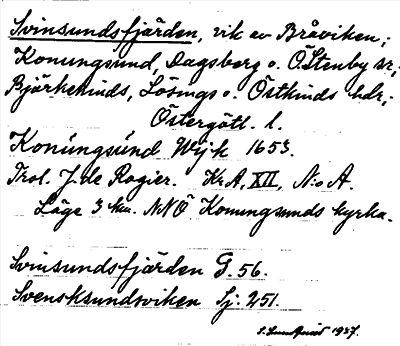 Svinsundsfjärden, vik av Bråviken;
Konungsund, Dagsberg o. Ö Stenby sr,;
Björkekinds, Lösings o. Östkinds hdr;
Östergötl. l.
Konungsund Wijk 1653.
Trol. J. de Rogier. KrA, XII, N:o A.
Läge 3 km. NNÖ Konungsunds kyrka.
Svinsundsfjärden G. 56.
Svensksundsviken Sj. 251.
S. Lundquist 1937.